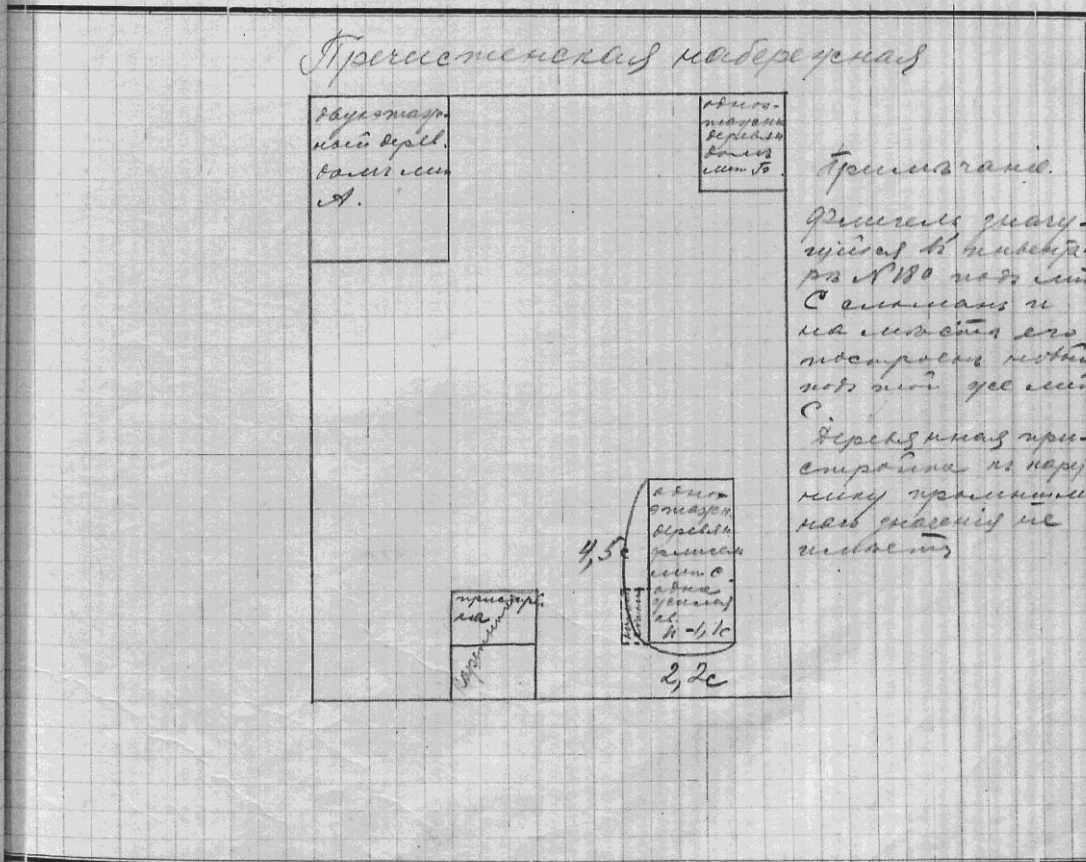 Пречистенская набережная
двухэтаж-
ный дерев.
домъ лит
А.
одно-
этажный
деревян
домъ
лит Б.
Примѣчаніе.
Флигель значу-
щійся въ инвента-
рѣ № 180 подъ лит
С сломанъ и
на мѣстѣ его
построенъ новый
подъ той же лит
С.
Деревянная при-
стройка къ карет
нику
наго значенія не
имѣетъ
одно-
этажн.
деревян
флигель
лит С.
одна
жилая
кв.
h-1,1с
4,5с
2,2с
пристрой
ка
Каретникъ